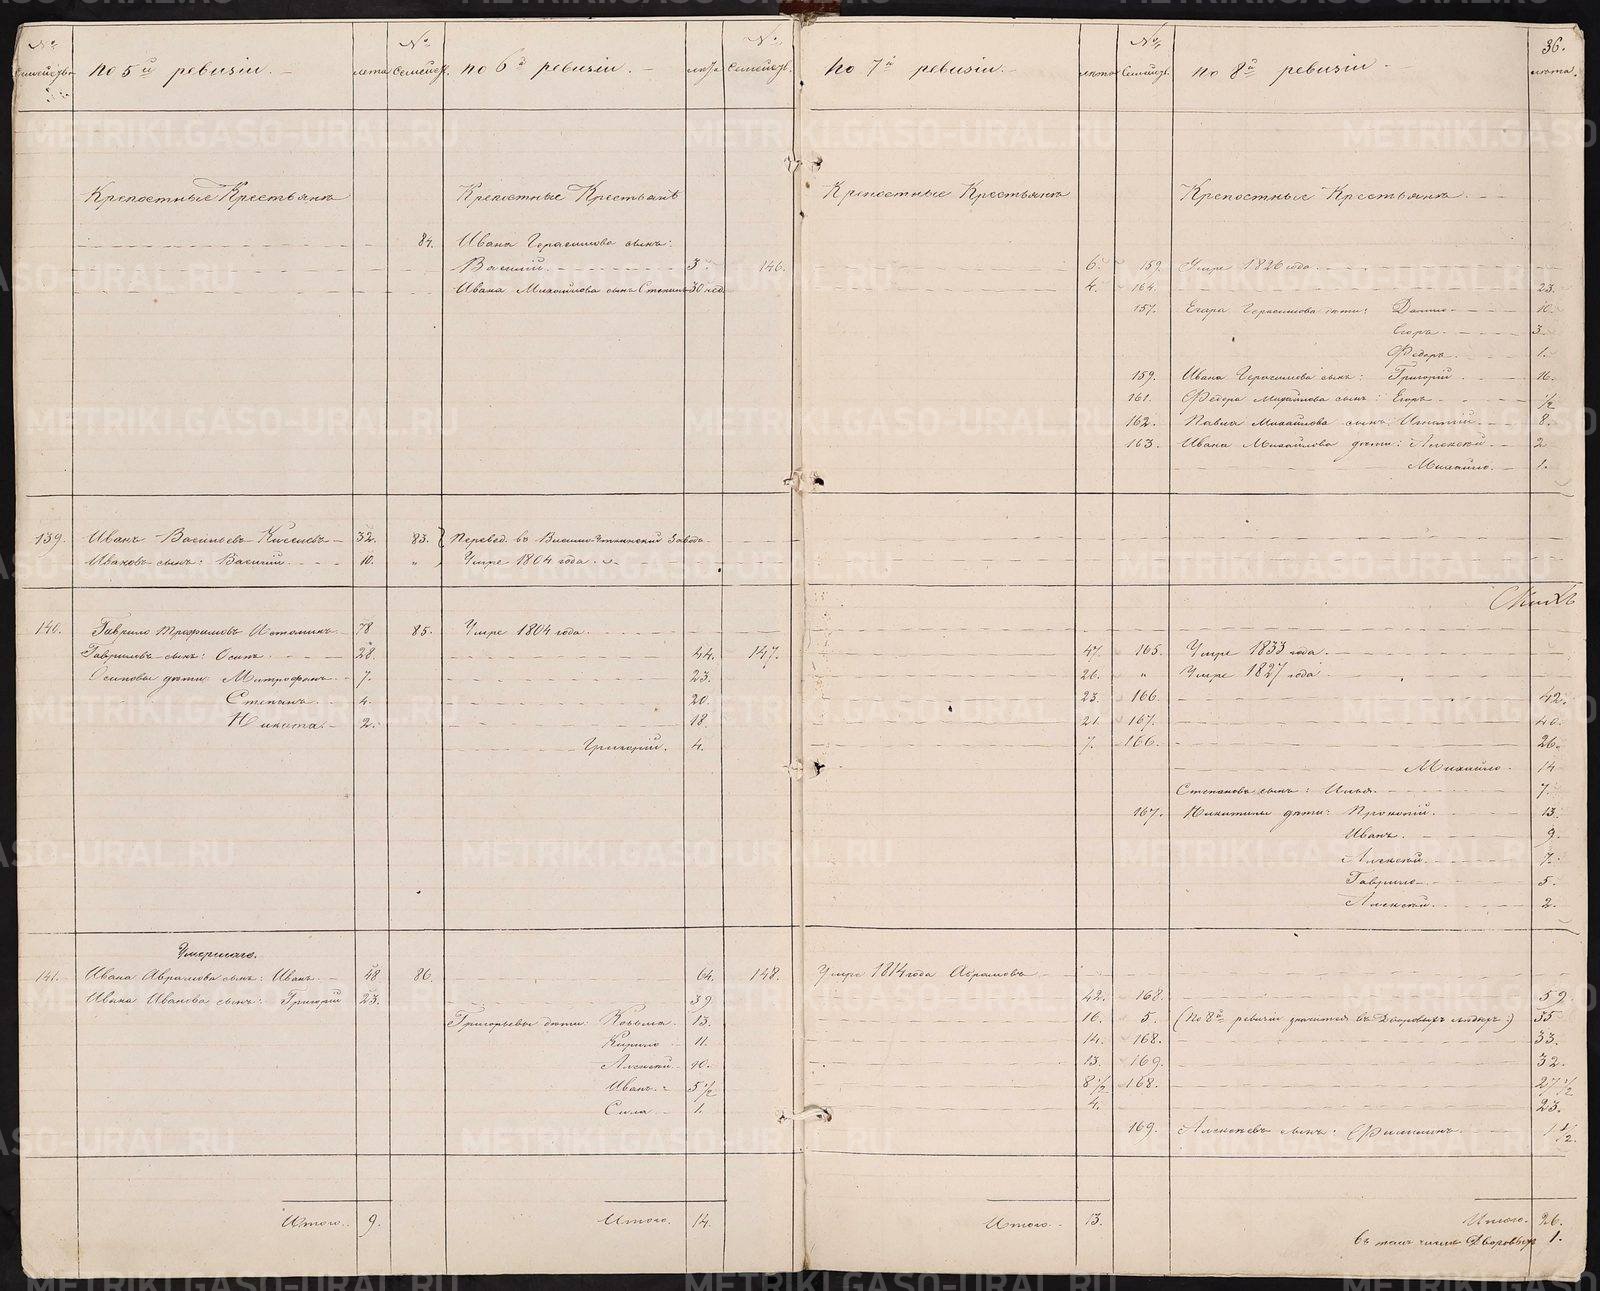 36.
№ семействъ по 5й ревизіи. лѣта № Семейст. по 6й ревизіи. лѣта № Семейст.
по 7й ревизіи. лѣта № Семейст. по 8й ревизіи. лѣта.
Крепостные Крестьяне Крепостные Крестьяне Крепостные Крестьяне Крепостные Крестьяне
84. Ивана Герасимова сынъ:
Василій. 3. 146. 6. 159. Умре 1826 года.
Ивана Михайлова сынъ Степанъ 30 нед. 4. 164. 23.
157. Егора Герасимова дѣти: Данило 10.
Егоръ. 3.
Федоръ. 1.
159. Ивана Герасимова сынъ: Григорій 16.
161. Федора Михайлова сынъ: Егоръ 1/2
162. Павла Михайлова сынъ: 8.
163. Ивана Михайлова дѣти: Алексѣй 2
Михайло. 1.
139. Иванъ Васильевъ Киселевъ 32. 83. Перевед. въ Висимо-Уткинской Заводъ
Ивановъ сынъ: Василій. 10. " Умре 1804 года.
140. Гаврило Трофимовъ Истоминъ 78 85. Умре 1804 года.
Гавриловъ сынъ: Осипъ. 28. 44. 147. 47. 165. Умре 1833 года.
Осиповы дѣти: Митрофанъ. 7. 23. 26. " Умре 1827 года
Степанъ. 4. 20. 23. 166. 42.
Никита. 2. 18. 21. 167. 40.
Григорій. 4. 7. 166. 26.
Михайло. 14
Степановъ сынъ: Илья. 7.
167. Никитины дѣти: Прокопій. 13.
Иванъ. 9.
Алексѣй. 7.
Гаврило. 5.
Алексѣй. 2.
Умершаго.
141. Ивана Аврамова сынъ: Иванъ. 48 86. 64. 148. Умре 1814 года Абрамовъ
Ивана Иванова сынъ: Григорій 23. 39. 42. 168. 59.
Григорьевы дѣти: Козьма. 13. 16. 5. (По 8й ревизіи значится въ Дворовыхъ людяхъ:) 35
Кирило 11. 14. 168. 33.
Алексѣй. 10. 13. 169. 32.
Иванъ. 5 1/2 8 1/2 168. 27 1/2
Сила. 1. 4. 23.
169. Алексѣевъ сынъ: 1 1/2.
Итого. 9. Итого. 14. Итого. 13. Итого. 26.
въ томъ числѣ Дворовыхъ 1.
METRIKI.GASO-URAL.RU